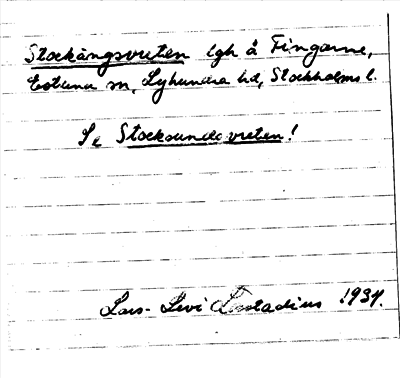 Stockängsvreten lgh å Fingarne,
Estuna sn, Lyhundra hd, Stockholms l.
Se Stocksundsvreten!
Lars-Levi Læstadius 1934.